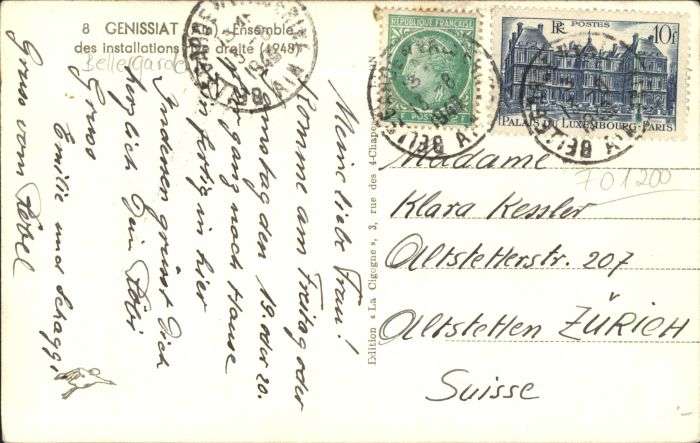 8 GENISSIAT (Ain) - Ensemble
des installations rive droite (1948)
Bellegarde
BELLEGARDE AIN
RÉPUBLIQUE FRANÇAISE
POSTES
RF POSTES 10f
PALAIS DU LUXEMBOURG-PARIS
Edition « La Cigogne », 3, rue des 4-Chapeaux
Meine liebe Frau!
Komme am Freitag oder
Samstag den 19. oder 20.
ganz nach Hause
bin fertig in hier
Indessen grüsst Dich
herzlich Dein
Gruss
Emilie und
Gruss vom
Madame
Klara Kessler
Altstetterstr. 207
Altstetten ZÜRICH
Suisse
701200